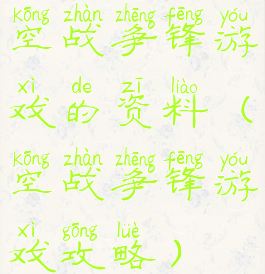 kōng zhàn zhēng fēng yóu
空战争锋游
xì de zī liào
戏的资料（
kōng zhàn zhēng fēng yóu
空战争锋游
xì gōng lüè
戏攻略）